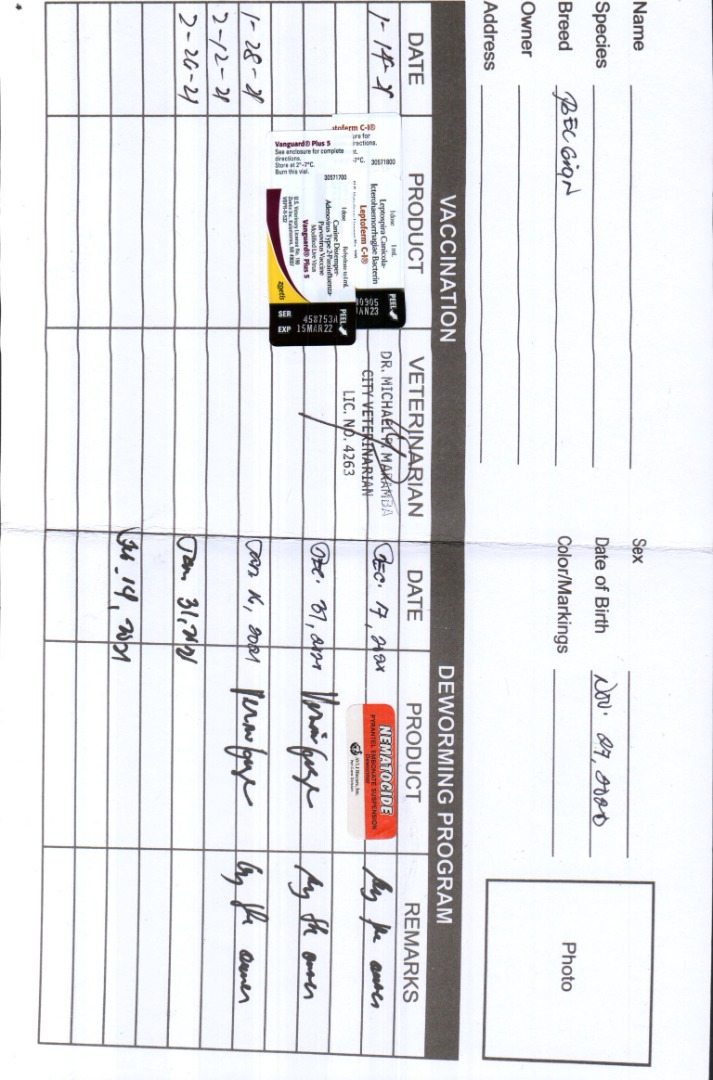 Name
Sex
Species
Date of Birth Nov. 27, 2020
Breed
Color/Markings
Owner
Address
Photo
VACCINATION
DEWORMING PROGRAM
DATE
PRODUCT
VETERINARIAN
DATE
PRODUCT
REMARKS
1-14-21
Leptoferm C-I®
30571800
1 dose 1 mL
Leptospira Canicola-
Icterohaemorrhagiae Bacterin
Leptoferm C-I®
PEEL
JAN23
DR. MICHAEL MARAMBA
CITY VETERINARIAN
LIC. NO. 4263
Dec. 17, 2020
NEMATOCIDE
PYRANTEL EMBONATE SUSPENSION
Dewormer
By the owner
Vanguard® Plus 5
See enclosure for complete
directions.
Store at 2°-7°C.
Burn this vial.
30571700
1 dose Rehydrate to 1 mL
Canine Distemper-
Adenovirus Type 2-Parainfluenza-
Parvovirus Vaccine
Modified Live Virus
Vanguard® Plus 5
U.S. Veterinary License No. 190
Zoetis Inc. Kalamazoo, MI 49007
zoetis
PEEL
SER 458753A
EXP 15MAR22
Dec. 31, 2020
By the owner
1-28-21
Jan 16, 2021
By the owner
2-12-21
2-26-21
Jan. 31, 2021
Feb. 14, 2021